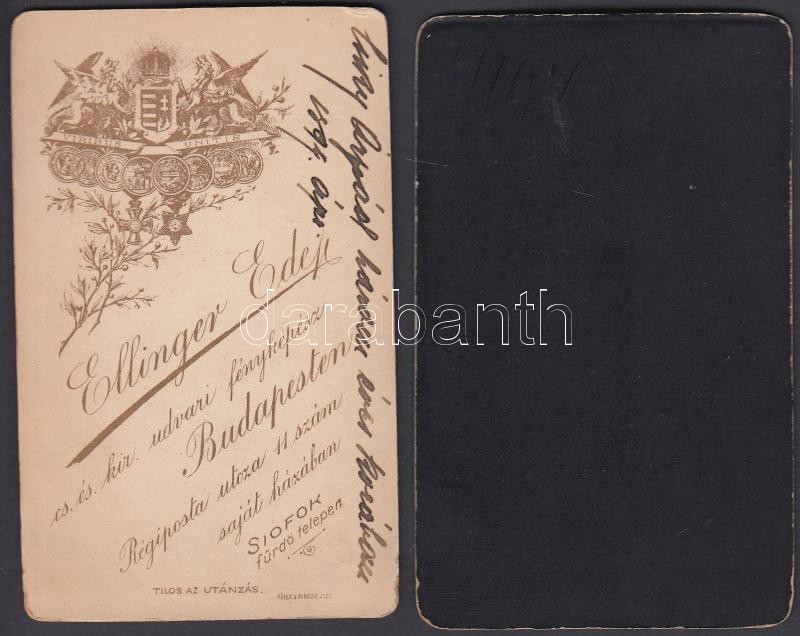 VIRIBUS UNITIS
Ellinger Ede
cs. és. kir. udvari fényképész
Budapesten
Régiposta utcza 11 szám
saját házában
SIOFOK
fürdő telepen
TILOS AZ UTÁNZÁS.
Árpád három éves korában
darabanth